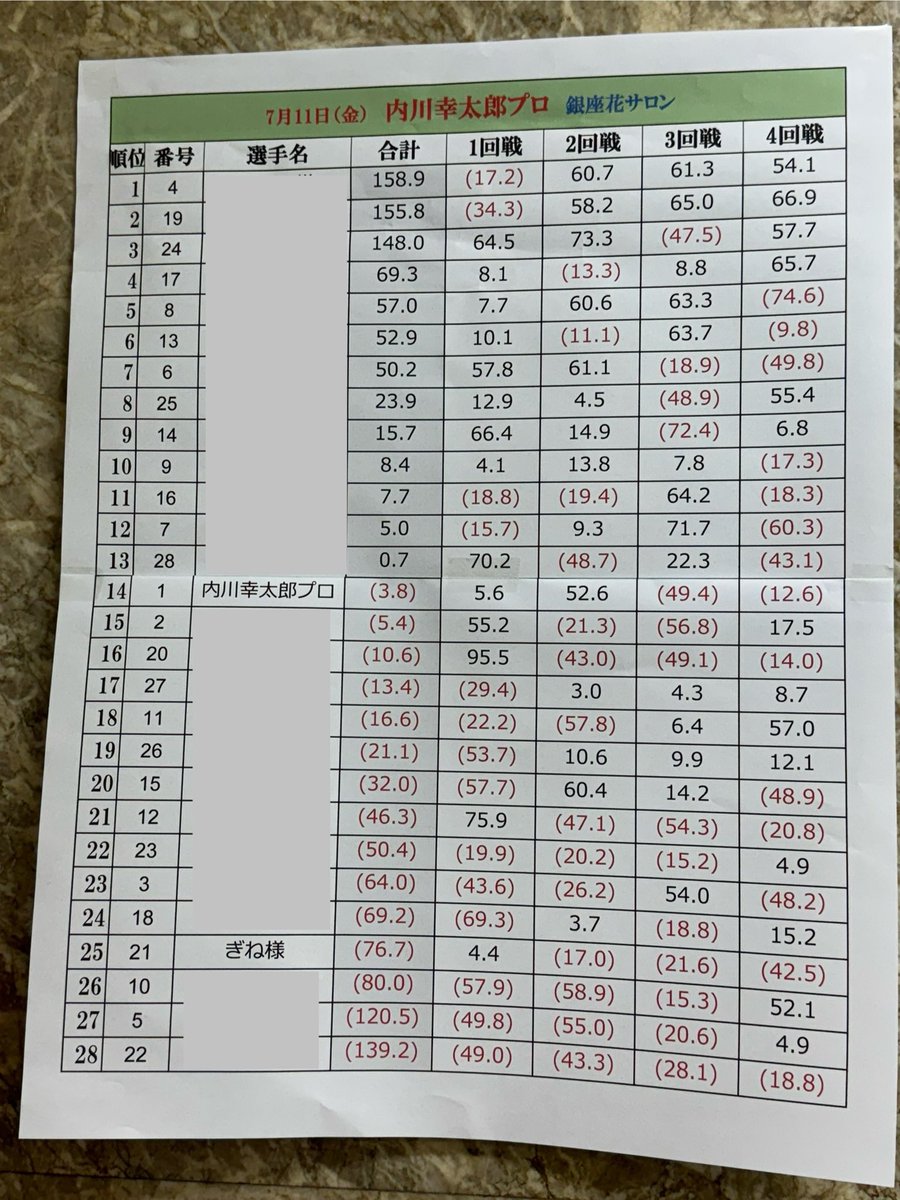 7月11日(金) 内川幸太郎プロ 銀座花サロン
順位 番号 選手名 合計 1回戦 2回戦 3回戦 4回戦
1 4 158.9 (17.2) 60.7 61.3 54.1
2 19 155.8 (34.3) 58.2 65.0 66.9
3 24 148.0 64.5 73.3 (47.5) 57.7
4 17 69.3 8.1 (13.3) 8.8 65.7
5 8 57.0 7.7 60.6 63.3 (74.6)
6 13 52.9 10.1 (11.1) 63.7 (9.8)
7 6 50.2 57.8 61.1 (18.9) (49.8)
8 25 23.9 12.9 4.5 (48.9) 55.4
9 14 15.7 66.4 14.9 (72.4) 6.8
10 9 8.4 4.1 13.8 7.8 (17.3)
11 16 7.7 (18.8) (19.4) 64.2 (18.3)
12 7 5.0 (15.7) 9.3 71.7 (60.3)
13 28 0.7 70.2 (48.7) 22.3 (43.1)
14 1 内川幸太郎プロ (3.8) 5.6 52.6 (49.4) (12.6)
15 2 (5.4) 55.2 (21.3) (56.8) 17.5
16 20 (10.6) 95.5 (43.0) (49.1) (14.0)
17 27 (13.4) (29.4) 3.0 4.3 8.7
18 11 (16.6) (22.2) (57.8) 6.4 57.0
19 26 (21.1) (53.7) 10.6 9.9 12.1
20 15 (32.0) (57.7) 60.4 14.2 (48.9)
21 12 (46.3) 75.9 (47.1) (54.3) (20.8)
22 23 (50.4) (19.9) (20.2) (15.2) 4.9
23 3 (64.0) (43.6) (26.2) 54.0 (48.2)
24 18 (69.2) (69.3) 3.7 (18.8) 15.2
25 21 ぎね様 (76.7) 4.4 (17.0) (21.6) (42.5)
26 10 (80.0) (57.9) (58.9) (15.3) 52.1
27 5 (120.5) (49.8) (55.0) (20.6) 4.9
28 22 (139.2) (49.0) (43.3) (28.1) (18.8)